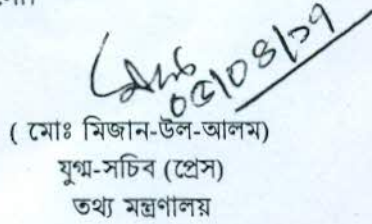 ০৫/০৪/১৭
( মোঃ মিজান-উল-আলম)
যুগ্ম-সচিব (প্রেস)
তথ্য মন্ত্রণালয়